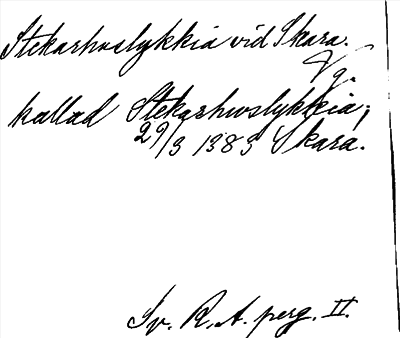 Stekarhuslykkia vid Skara.
Vg.
kallad Stekarhwslykkia;
29/3 1383 Skara.
Sv. R. A. perg. II.